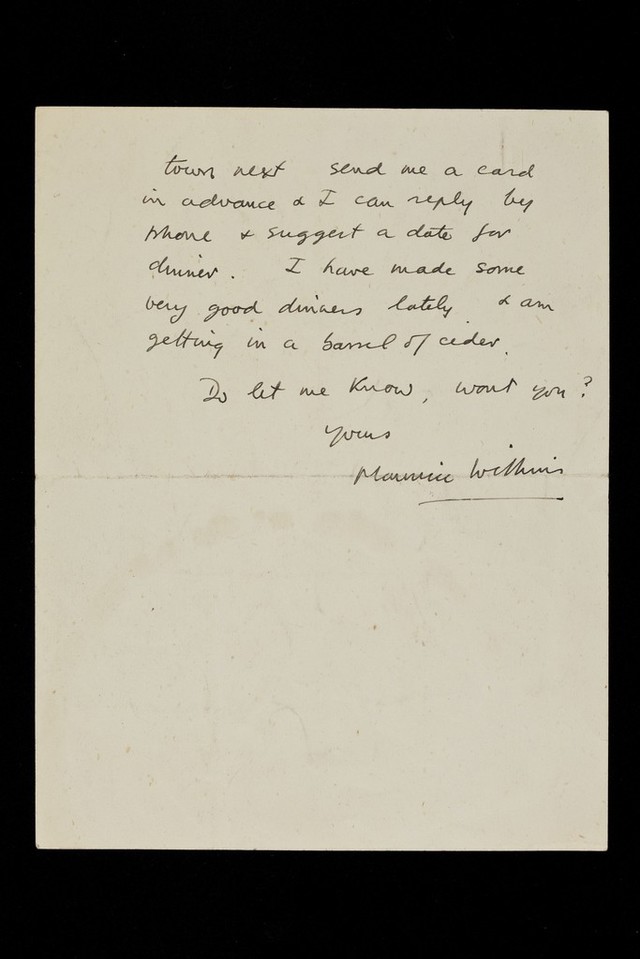 town next send me a card
in advance & I can reply by
phone & suggest a date for
dinner. I have made some
very good dinners lately & am
getting in a barrel of cider.
Do let me know, wont you?
Yours
Maurice Wilkins